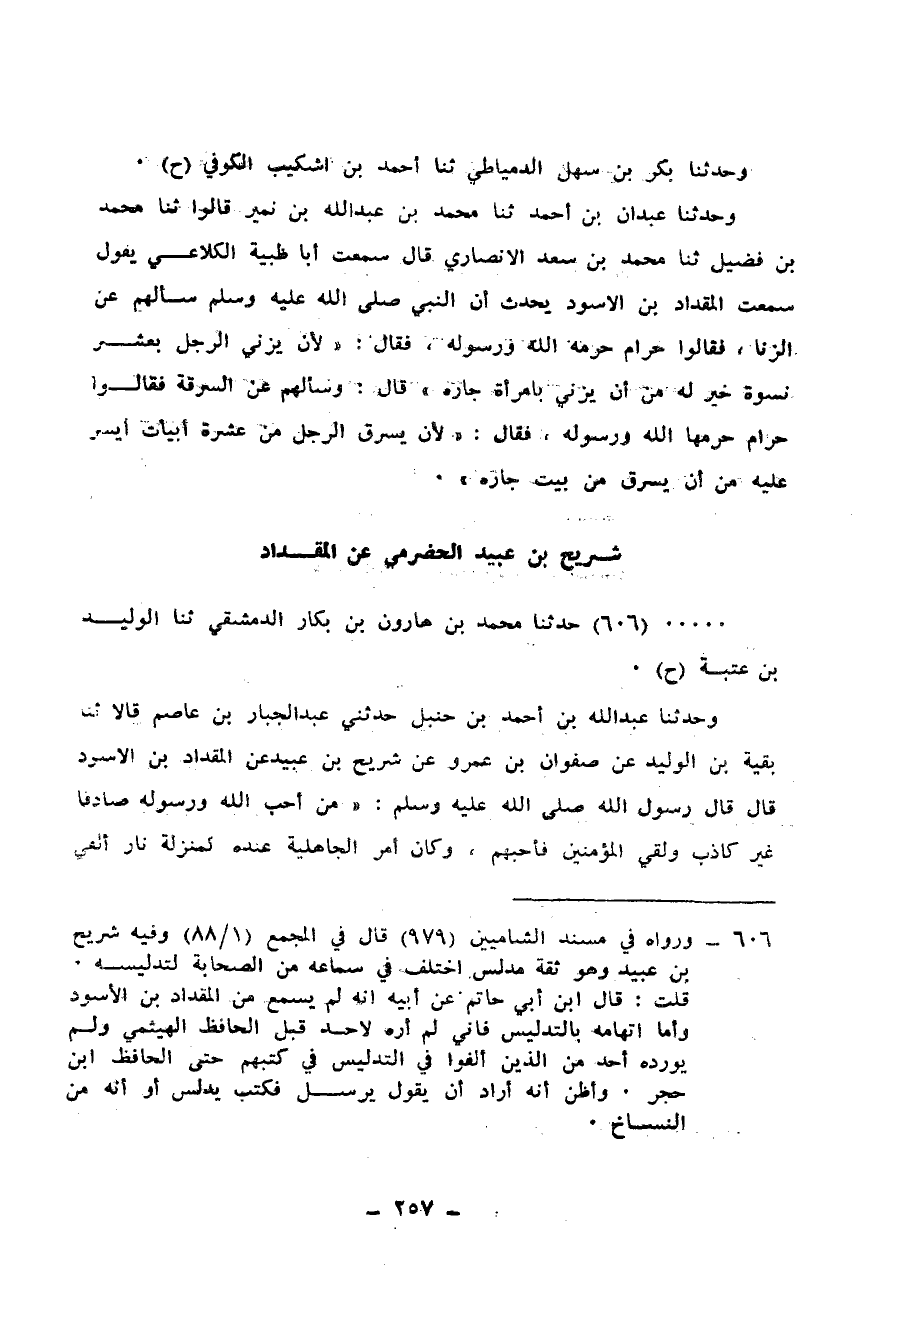 وحدثنا بكر بن سهل الدمياطي ثنا أحمد بن اشكيب الكوفي (ح) ٠
وحدثنا عبدان بن أحمد ثنا محمد بن عبدالله بن نمير قالوا ثنا محمد
بن فضيل ثنا محمد بن سعد الانصاري قال سمعت أبا ظبية الكلاعي يقول
سمعت المقداد بن الاسود يحدث أن النبي صلى الله عليه وسلم سألهم عن
الزنا ، فقالوا حرام حرمه الله ورسوله ، فقال : « لأن يزني الرجل بعشر
نسوة خير له من أن يزني بامرأة جاره » قال : وسألهم عن السرقة فقالوا
حرام حرمها الله ورسوله ، فقال : « لأن يسرق الرجل من عشرة أبيات أيسر
عليه من أن يسرق من بيت جاره » ٠
شريح بن عبيد الحضرمي عن المقداد
٠٠٠٠٠ (٦٠٦) حدثنا محمد بن هارون بن بكار الدمشقي ثنا الوليد
بن عتبة (ح) ٠
وحدثنا عبدالله بن أحمد بن حنبل حدثني عبدالجبار بن عاصم قالا ثنا
بقية بن الوليد عن صفوان بن عمرو عن شريح بن عبيدعن المقداد بن الاسود
قال قال رسول الله صلى الله عليه وسلم : « من أحب الله ورسوله صادقا
غير كاذب ولقي المؤمنين فأحبهم ، وكان أمر الجاهلية عنده كمنزلة نار ألقي
٦٠٦ ــ ورواه في مسند الشاميين (٩٧٩) قال في المجمع (٨٨/١) وفيه شريح
بن عبيد وهو ثقة مدلس اختلف في سماعه من الصحابة لتدليسه ٠
قلت : قال ابن أبي حاتم عن أبيه انه لم يسمع من المقداد بن الأسود
وأما اتهامه بالتدليس فاني لم أره لاحد قبل الحافظ الهيثمي ولم
يورده أحد من الذين ألفوا في التدليس في كتبهم حتى الحافظ ابن
حجر ٠ وأظن أنه أراد أن يقول يرسل فكتب يدلس أو أنه من
النساخ ٠
ــ ٢٥٧ ــ